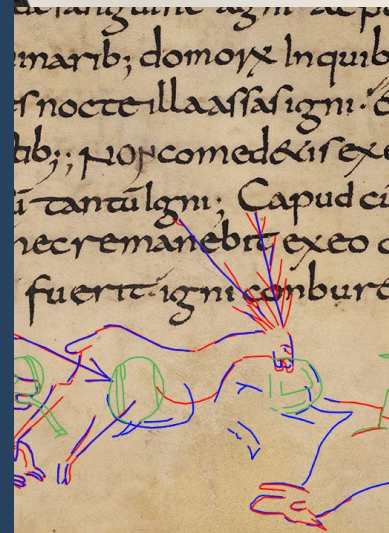 de sanguine agni ac p
inarib; domorx In quib
s nocte illa assas igni · 
tib; ; Non comed&is exe
ū tantū Igni ; Capud cū
nec remanebit ex eo
fuerit igni conbure